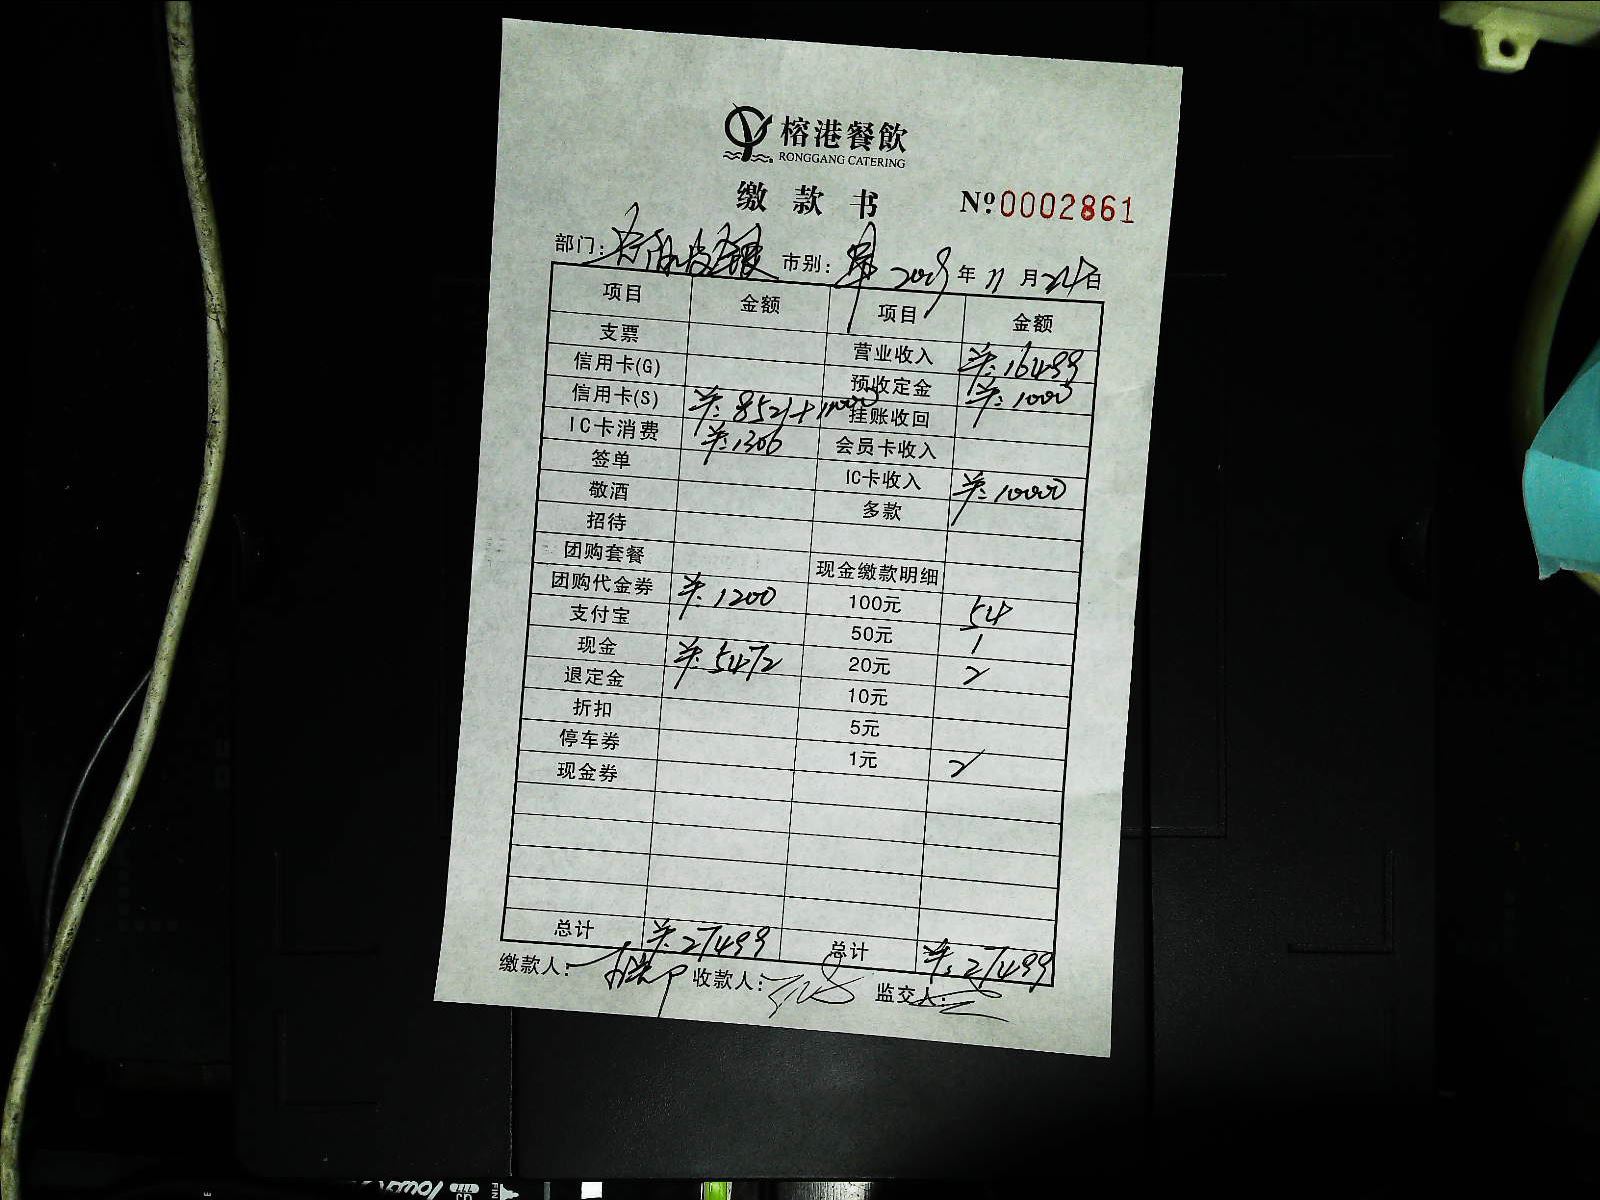 榕港餐飲
RONGGANG CATERING
缴款书 Nº0002861
部门: 市别: 2009年11月24日
项目 金额 项目 金额
支票 营业收入 ¥:16499
信用卡(G) 预收定金 ¥:1000
信用卡(S) ¥:8521+11000 挂账收回
IC卡消费 ¥:1306 会员卡收入
签单 IC卡收入 ¥:10000
敬酒 多款
招待
团购套餐 现金缴款明细
团购代金券 ¥:1200 100元 54
支付宝 50元 1
现金 ¥:5472 20元 2
退定金 10元
折扣 5元
停车券 1元 2
现金券
总计 ¥:27499 总计 ¥:27499
缴款人: 收款人: 监交人: